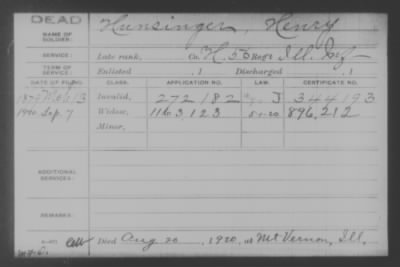 DEAD
NAME OF SOLDIER: Hunsinger, Henry
SERVICE: Late rank, Co. H. 56 Reg't Ill. Inf
TERM OF SERVICE: Enlisted , 1 Discharged , 1
DATE OF FILING CLASS. APPLICATION NO. LAW. CERTIFICATE NO.
1879 Invalid, 272 182 J 344193
1920 Sep. 7 Widow, 1163 123 896,212
Minor,
ADDITIONAL SERVICES:
REMARKS:
Died Aug 20, 1920, at Mt Vernon, Ill.